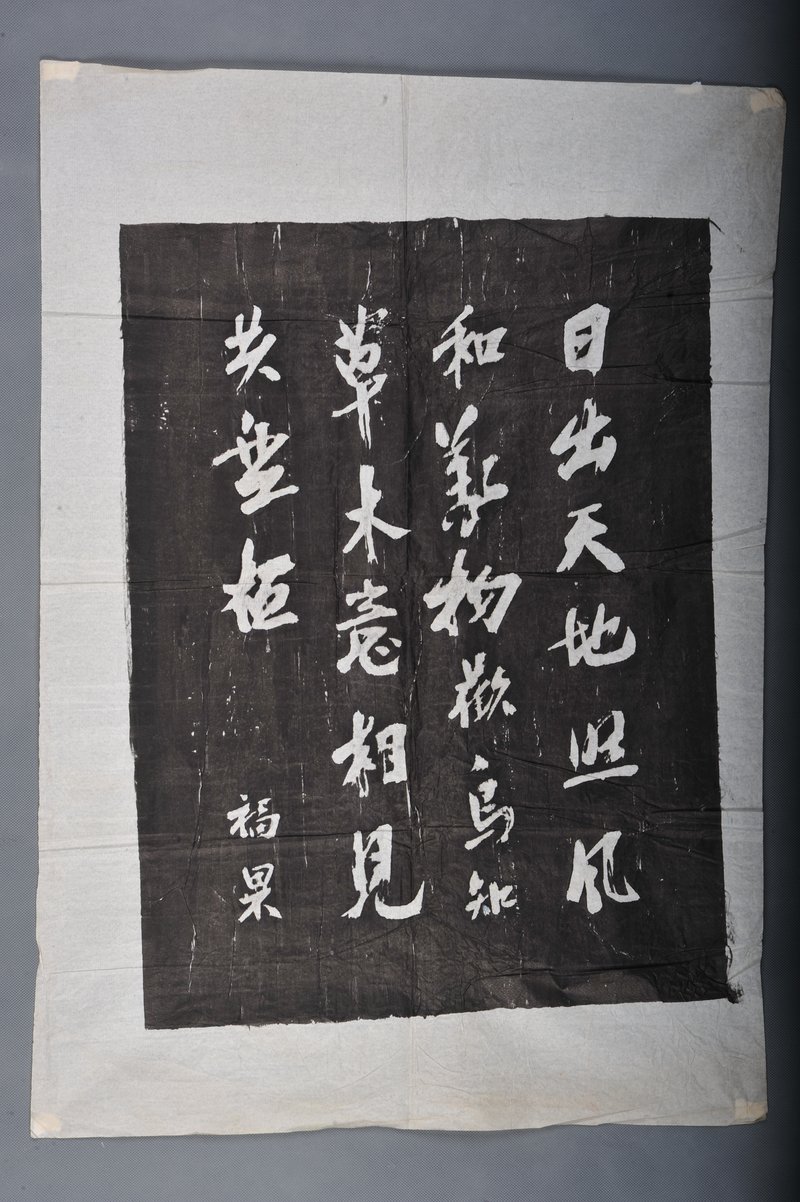 日出天地照风
和萬物歡鸟知
草木意相見
共盘桓
福果